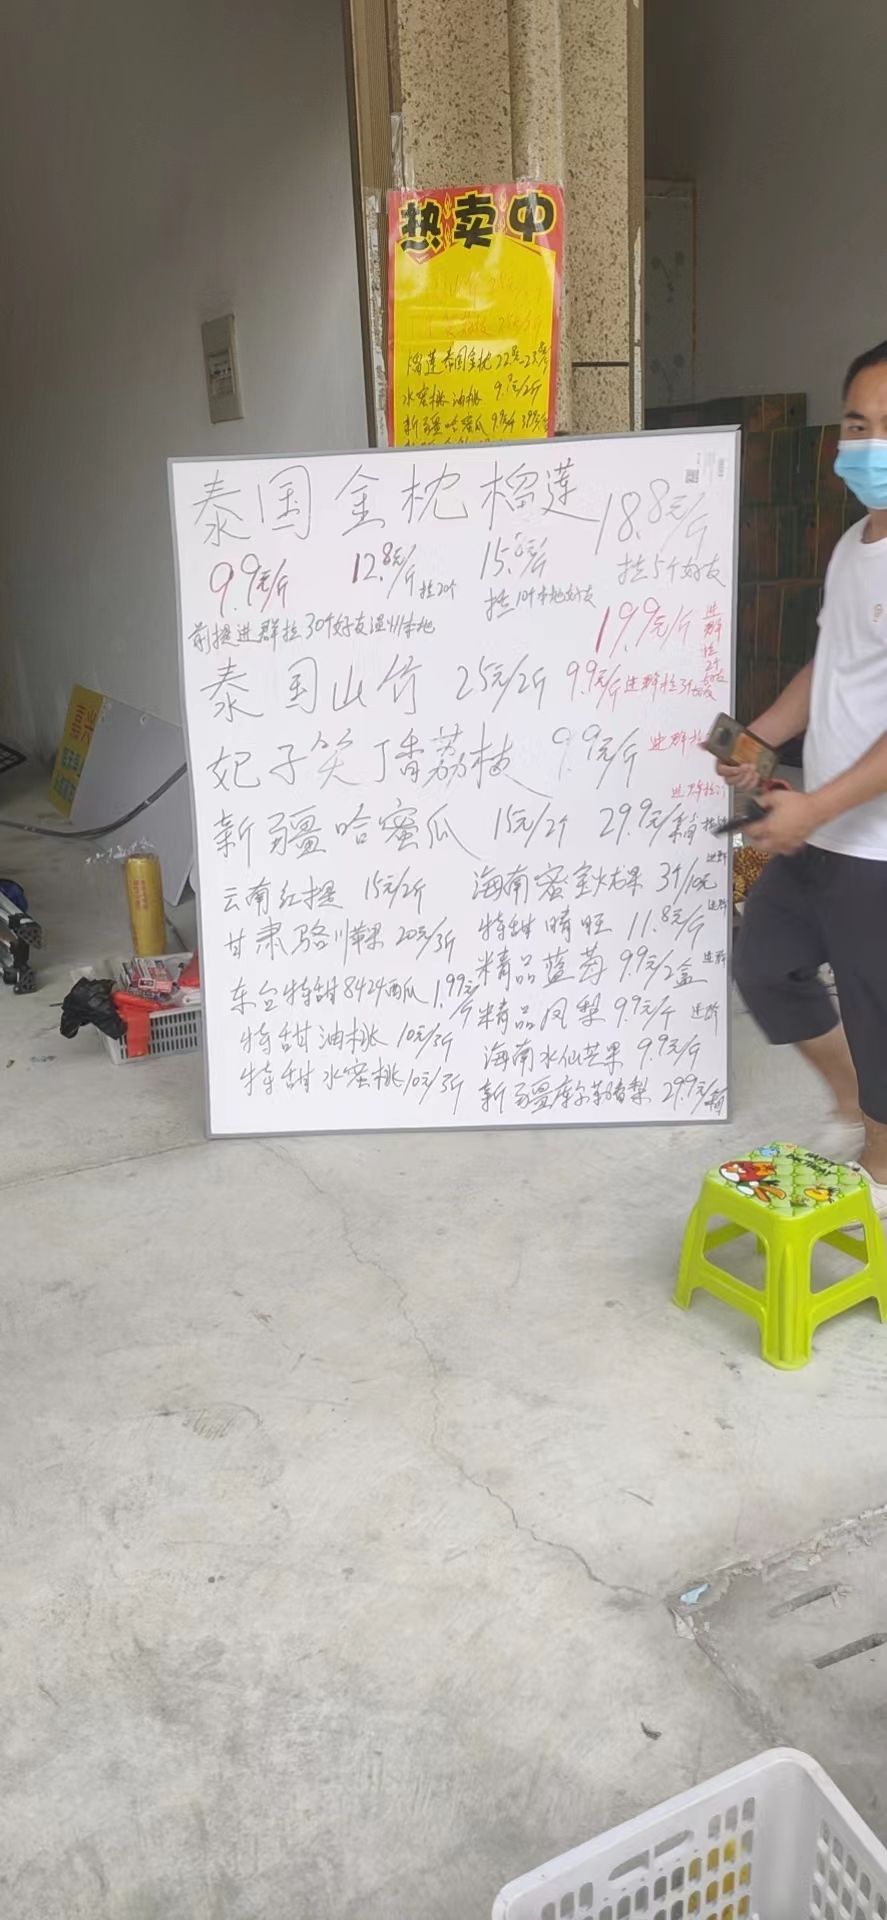 热卖中
榴莲泰国金枕22元-23元/斤
水蜜桃 油桃 9.9元/2斤
新疆哈蜜瓜 9.9元/斤 39元/
泰国金枕榴莲 18.8元/斤
9.9元/斤 12.8元/斤 拉20个 15.8元/斤 拉10个本地好友 拉5个好友
前提进群拉30个好友温州本地
19.9元/斤 进群拉2个好友
泰国山竹 25元/2斤 9.9元/斤 进群拉3个好友
妃子笑丁香荔枝 9.9元/斤 进群拉
进群拉2个
新疆哈蜜瓜 15元/2斤 29.9元/箱
云南红提 15元/2斤
海南蜜宝火龙果 3个10元 进群
甘肃骆川苹果 20元/3斤
特甜晴旺 11.8元/斤 进群
东台特甜8424西瓜 1.99元/斤
精品蓝莓 9.9元/2盒 进群
特甜油桃 10元/3斤
精品凤梨 9.9元/斤 进群
特甜水蜜桃 10元/3斤
海南水仙芒果 9.9元/斤
新疆库尔勒香梨 29.9元/箱